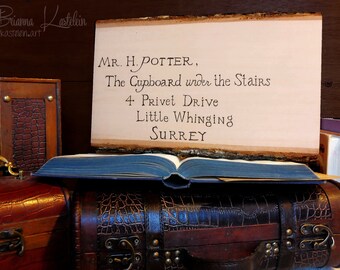 Brianna Kostelnik
Mr. H. Potter,
The Cupboard under the Stairs
4 Privet Drive
Little Whinging
Surrey